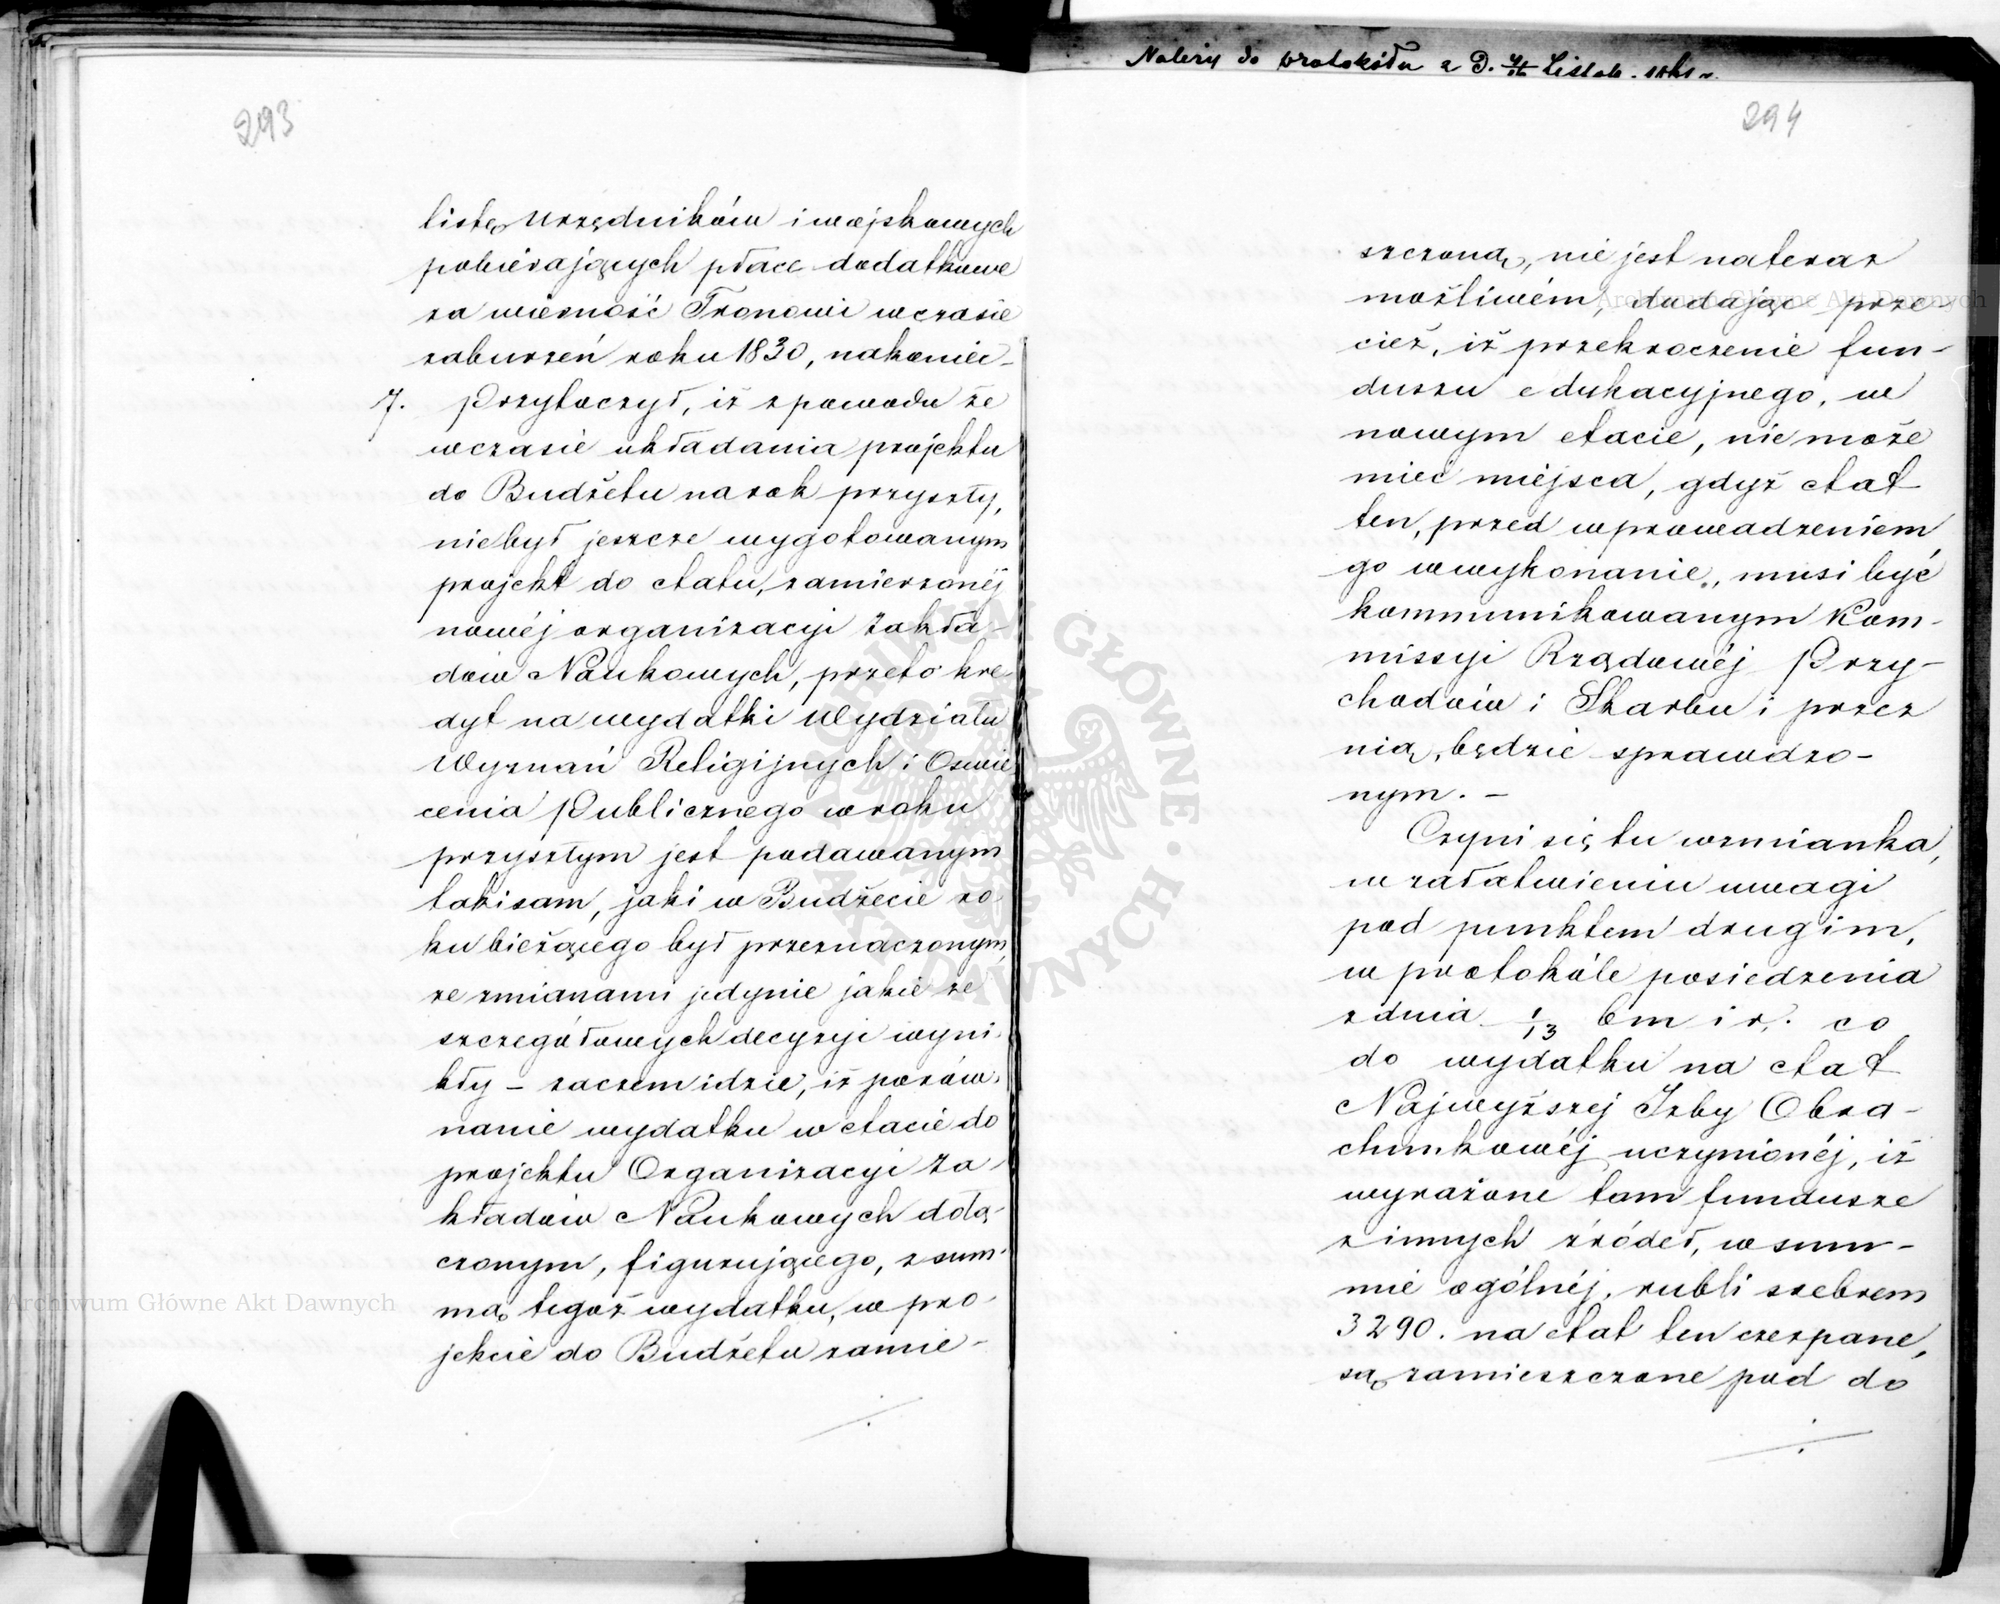 293
listę Urzędników i wojskowych
pobierających płace dodatkowe
za wierność Tronowi w czasie
zaburzeń roku 1830, nakoniec –
7. Przytoczył, iż z powodu że
w czasie układania projektu
do Budżetu na rok przyszły,
niebył jeszcze wygotowanym
projekt do etatu, zamierzonéj
nowéj organizacyi Zakła-
dów Naukowych, przeto kre-
dyt na wydatki Wydziału
Wyznań Religijnych i Oświe
cenia Publicznego w roku
przyszłym jest podawanym
takisam, jaki w Budżecie ro-
ku bieżącego był przeznaczonym,
ze zmianami jedynie jakie ze
szczegółowych decyzyi wyni-
kły – zaczem idzie, iż porów-
nanie wydatku w etacie do
projektu Organizacyi Za-
kładów Naukowych dołą-
czonym, figurującego, z sum-
mą tegoż wydatku, w pro-
jekcie do Budżetu zamie-
Należy do protokółu z D. 4/16 Listop. 1861 r.
294
szczoną, nie jest na teraz
możliwém, dodając prze-
cież, iż przekroczenie fun-
duszu edukacyjnego, w
nowym etacie, nie może
mieć miejsca, gdyż etat
ten, przed wprowadzeniem
go w wykonanie, musi być
kommunikowanym Kom-
missyi Rządowéj Przy-
chodów i Skarbu i przez
nią, będzie sprawdzo-
nym. –
Czyni się tu wzmianka,
w załatwieniu uwagi
pod punktem drugim,
w protokóle posiedzenia
z dnia 1/13 bm i r. co
do wydatku na etat
Najwyższej Izby Obra-
chunkowéj uczynionéj, iż
wyrażone tam fundusze
z innych źródeł, w sum-
mie ogólnéj, rubli srebrem
3290. na etat ten czerpane,
są zamieszczone pod do
Archiwum Główne Akt Dawnych
Archiwum Główne Akt Dawnych
ARCHIWUM GŁÓWNE AKT DAWNYCH